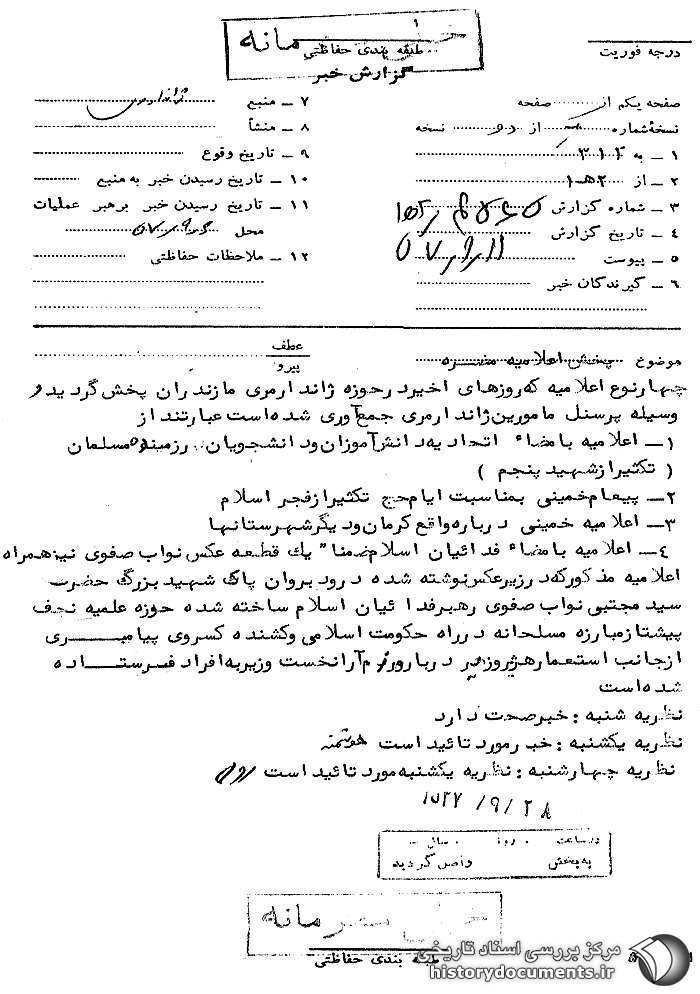 خیلی محرمانه
طبقه بندی حفاظتی
گزارش خبر
درجه فوریت
صفحه یکم از صفحه
نسخه شماره از نسخه
۱ ـ به ۳۱۲
۲ ـ از ۲هـ۱
۳ ـ شماره گزارش
۴ ـ تاریخ گزارش ۵۷/۹/۱۱
۵ ـ پیوست
۶ ـ گیرندگان خبر
۷ ـ منبع
۸ ـ منشأ
۹ ـ تاریخ وقوع
۱۰ ـ تاریخ رسیدن خبر به منبع
۱۱ ـ تاریخ رسیدن خبر برهبر عملیات
محل
۱۲ ـ ملاحظات حفاظتی
موضوع پخش اعلامیه مضره
عطف
پیرو
چهارنوع اعلامیه که روزهای اخیر در حوزه ژاندارمری مازندران پخش گردید و
وسیله پرسنل مامورین ژاندارمری جمع آوری شده است عبارتند از
۱ـ اعلامیه بامضاء اتحادیه دانش آموزان ودانشجویان رزمینده مسلمان
( تکثیر از شهید پنجم )
۲ـ پیعام خمینی بمناسبت ایام حج تکثیر از فجر اسلام
۳ـ اعلامیه خمینی درباره واقع کرمان ودیگر شهرستانها
۴ـ اعلامیه بامضاء فدائیان اسلام ضمنا" یك قطعه عکس نواب صفوی نیز همراه
اعلامیه مذکور که در زیر عکس نوشته شده درود بروان پاك شهید بزرگ حضرت
سید مجتبی نواب صفوی رهبر فدائیان اسلام ساخته شده حوزه علمیه نجف
پیشتاز مبارزه مسلحانه در راه حکومت اسلامی وکشنده کسروی پیامبری
از جانب استعمار هژیر وزیر دربار ورزم آرا نخست وزیر به افراد فرستاده
شده است
نظریه شنبه : خبر صحت دارد
نظریه یکشنبه : خبر مورد تائید است
نظریه چهارشنبه : نظریه یکشنبه مورد تائید است
۱۵۲۷ /۹/ ۲۸
در ساعت روز سال
به بخش واصل گردید
خیلی محرمانه
طبقه بندی حفاظتی
مرکز بررسی اسناد تاریخی
historydocuments.ir